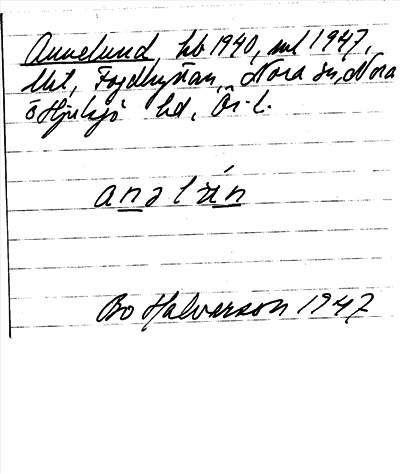 Annelund, hb 1940, ml 1947,
Uht, Fogdhyttan, Nora sn, Nora
o Hjulsjö hd, Ör. l.
anəlún
Bo Halvarson 1947